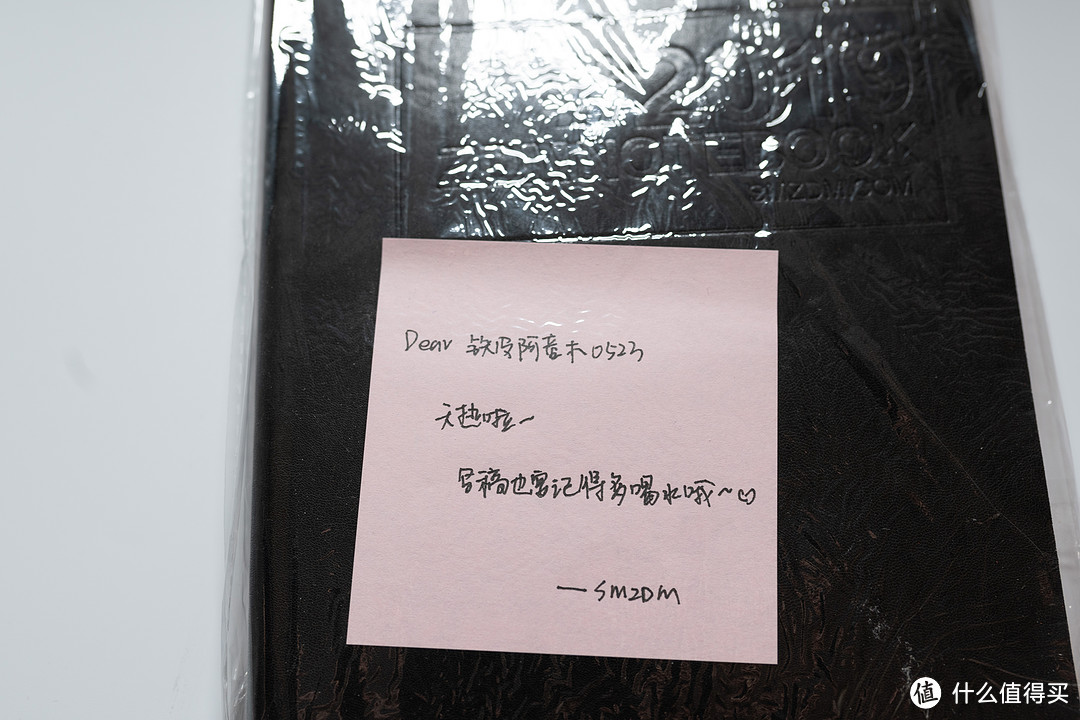 2019
NOTEBOOK
SMZDM.COM
Dear 铁皮阿童木0523
天热啦~
写稿也要记得多喝水哦~
一SMZDM
值 什么值得买